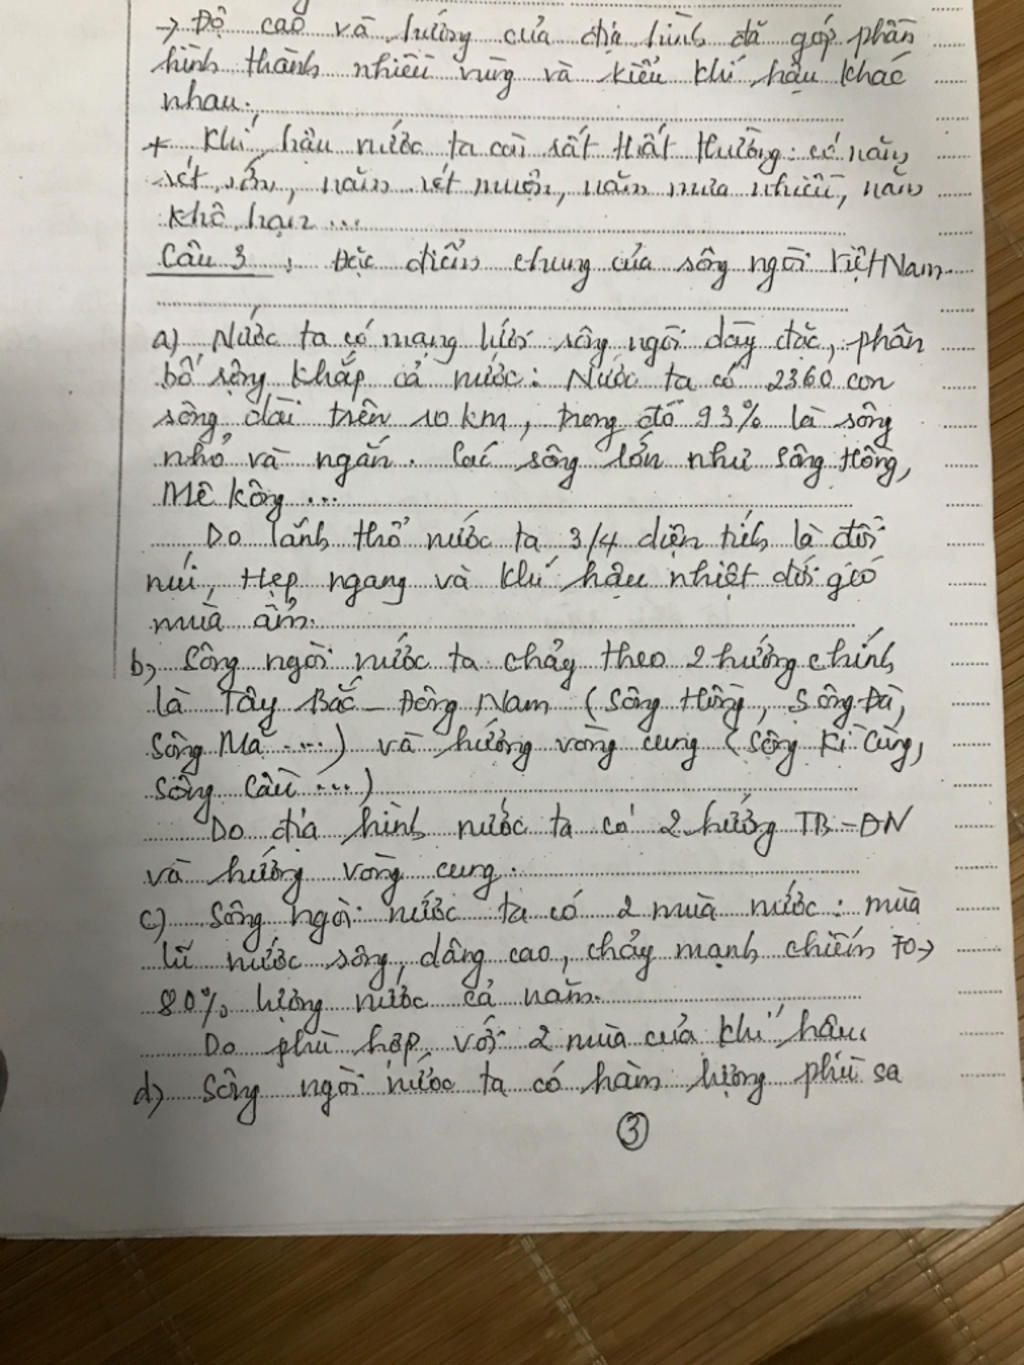 → Độ cao và hướng của địa hình đã góp phần
hình thành nhiều vùng và kiểu khí hậu khác
nhau.
+ Khí hậu nước ta còn rất thất thường: có năm
rét sớm, năm rét muộn, năm mưa nhiều, năm
khô hạn ...
Câu 3: Đặc điểm chung của sông ngòi Việt Nam
a) Nước ta có mạng lưới sông ngòi dày đặc, phân
bố rộng khắp cả nước: Nước ta có 2360 con
sông dài trên 10 km, trong đó 93% là sông
nhỏ và ngắn. Các sông lớn như sông Hồng,
Mê Kông ...
Do lãnh thổ nước ta 3/4 diện tích là đồi
núi, Hẹp ngang và khí hậu nhiệt đới gió
mùa ẩm.
b) Sông ngòi nước ta chảy theo 2 hướng chính
là Tây Bắc - Đông Nam (Sông Hồng, Sông Đà,
Sông Mã ...) và hướng vòng cung (Sông Kì Cùng,
Sông Cầu ...)
Do địa hình nước ta có 2 hướng TB-ĐN
và hướng vòng cung.
c) Sông ngòi nước ta có 2 mùa nước: mùa
lũ nước sông dâng cao, chảy mạnh chiếm 70→
80% lượng nước cả năm.
Do phù hợp với 2 mùa của khí hậu
d) Sông ngòi nước ta có hàm lượng phù sa
3